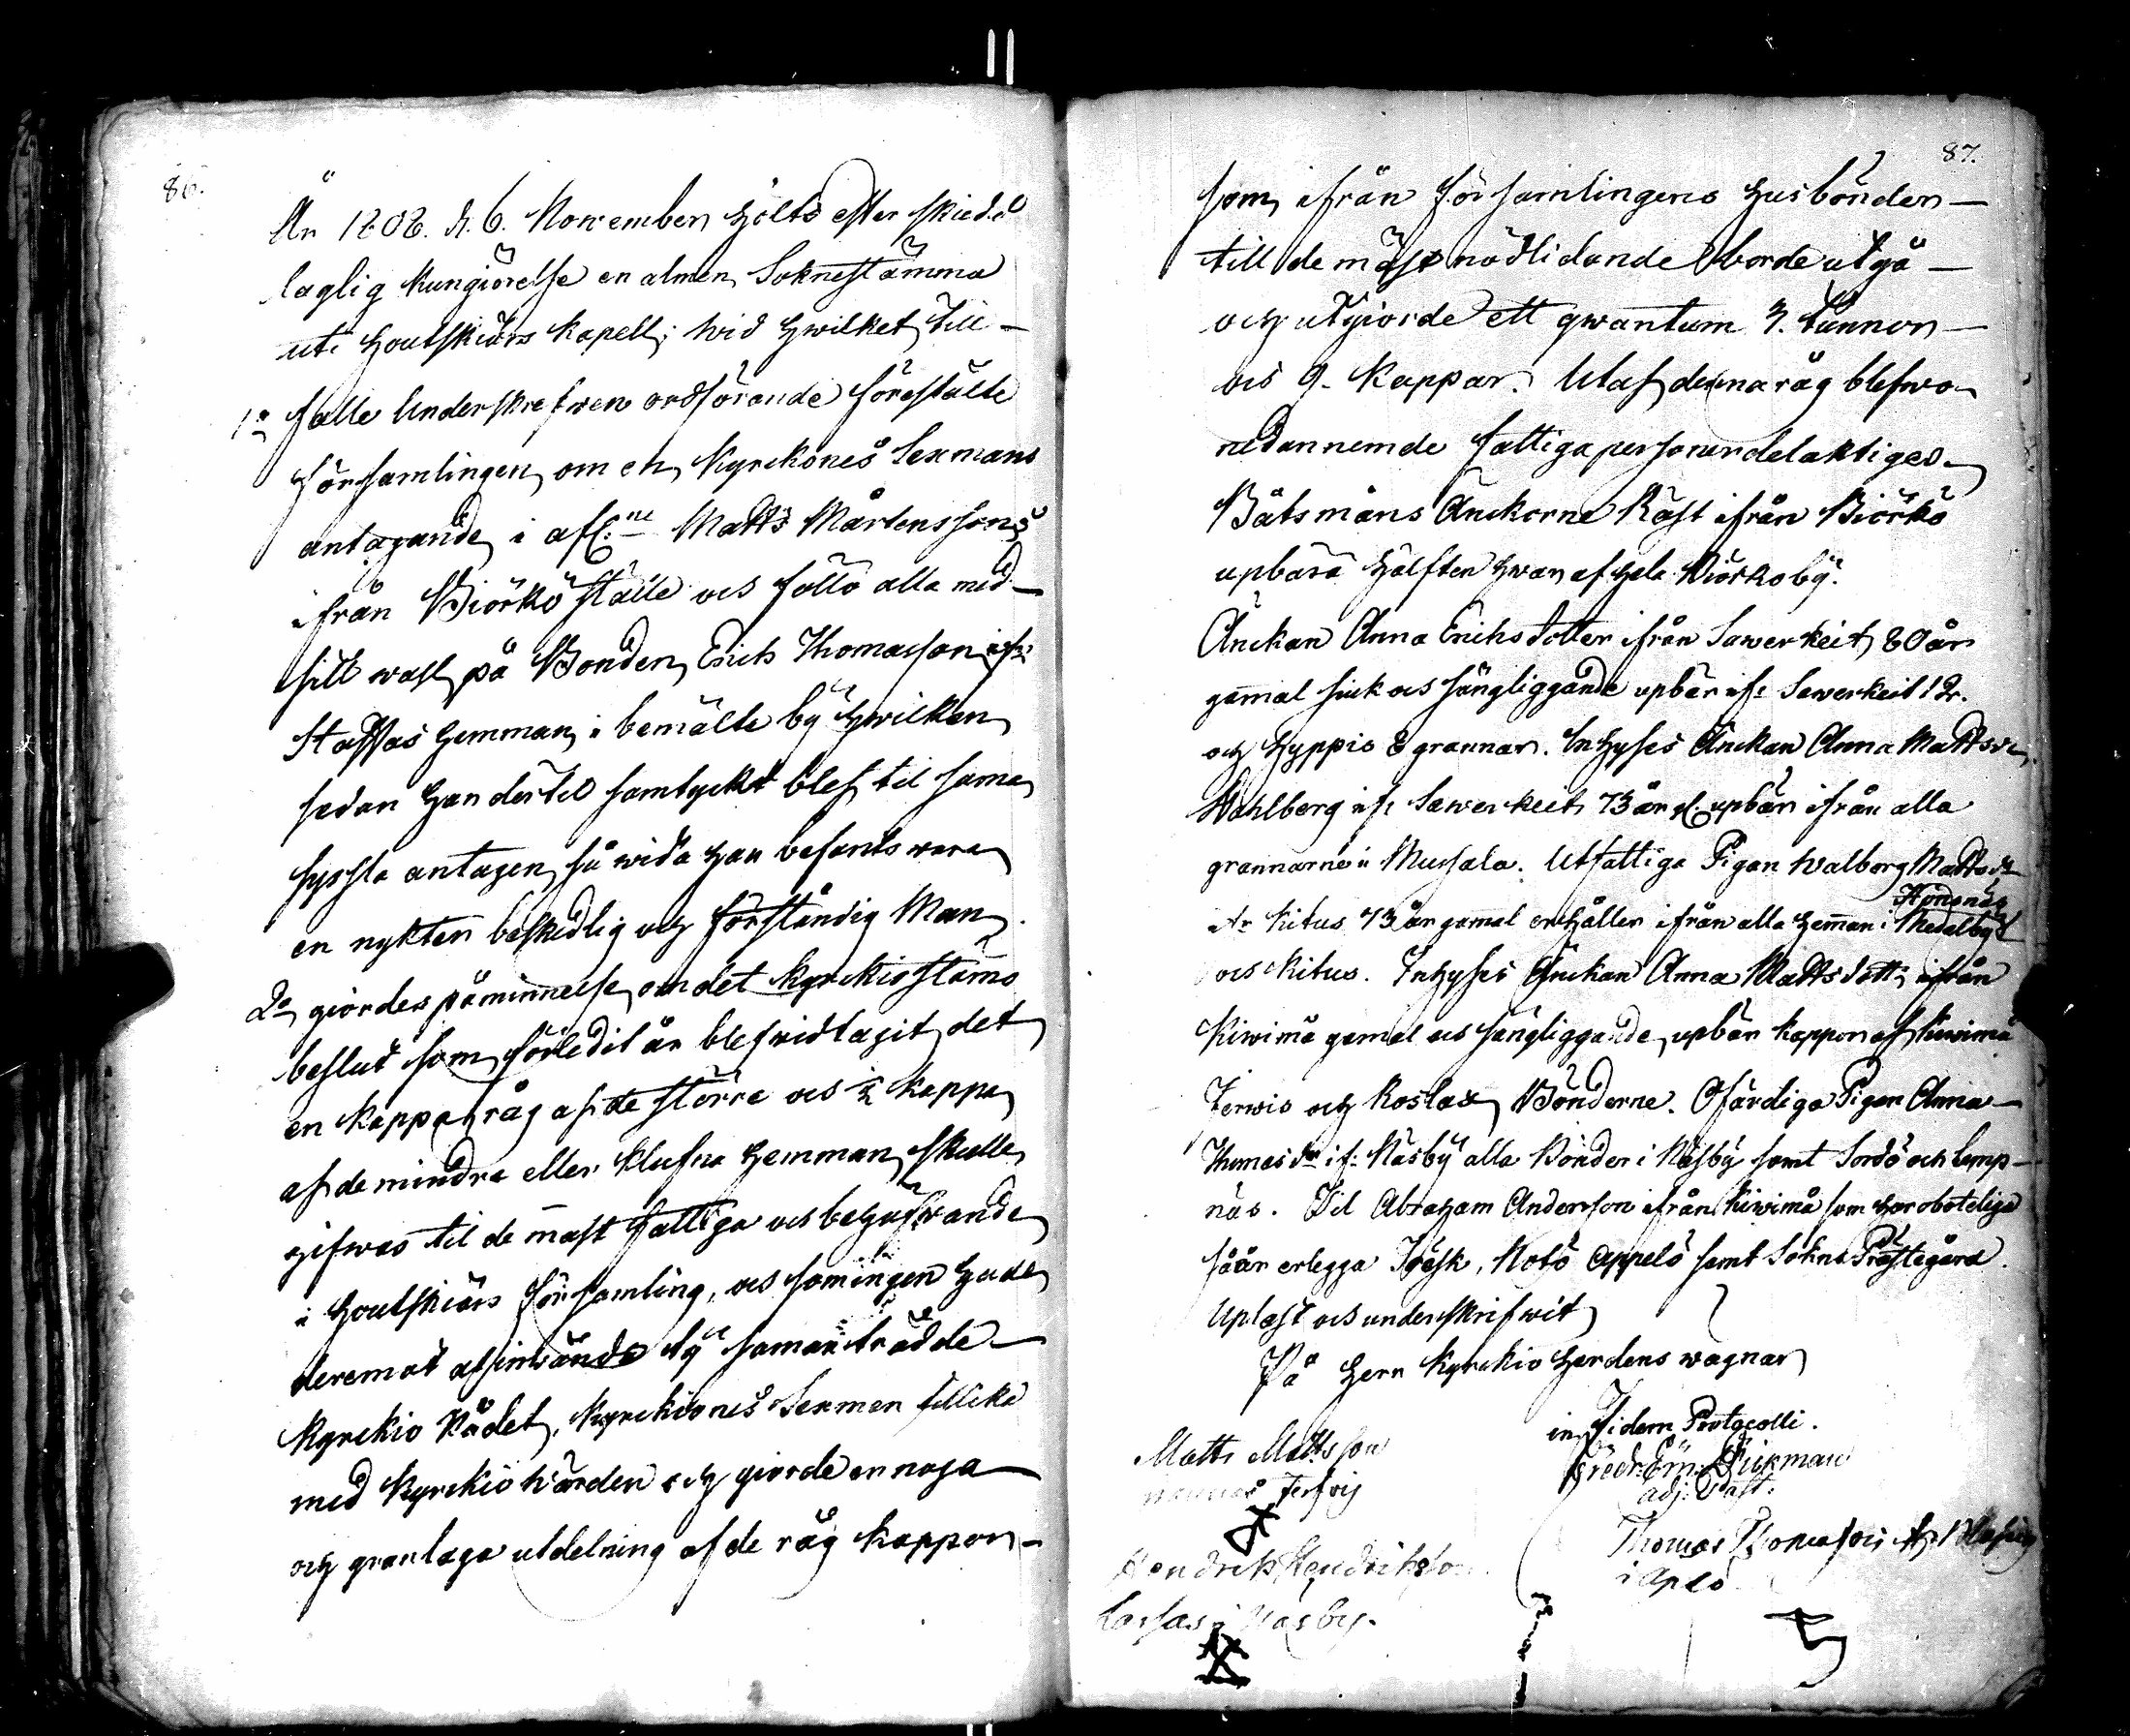 86.
År 1808. d. 6. November hölts efter skied
laglig kungiörelse en almen Soknestämma
uti Houtskiärs kapell; wid hwilket till-
1o falle Underskrefwen ordförande förestälte
församlingen om en Kyrkiones Sexmans
antagande i afl:ne Matts Mårtenssons
ifrån Biörkö ställe och föllo alla med
sitt wahl på Bonden Erich Thomasson if:
Staffas hemman i bemälte by hwilken
sedan han dertil samtyckt blef til sama
syssla antagen, så wida han befants vara
en nykter beskedlig och förståndig Man.
2o giordes påminnelse om det kyrkiostäms
beslut som förledit år blef widtagit det
en kappa råg af de större och ½ kappa
af de mindre eller klufna hemman skulle
gifwas til de mäst fattiga och behöfwande
i Houtskiärs församling, och som ingen hade
deremot at inwända ty samanträdde
kyrkio Rådet, kyrkiones Sexmen tillika
med kyrkiowärden och giorde en noga
och granlaga utdelning af de råg kappor
87.
som ifrån församlingens husbönder
till de mäst nödlidande borde utgå
och utgiorde ett qwantum 3. tunnor
och 9. kappar. Utaf denna råg blefwo
nedannemde fattiga personer delaktiges.
Båtsmans Änckorne Rast ifrån Biörkö
upbära hälften hwar af hela Biörkoby.
Änckan Anna Erichsdotter ifrån Sawerkeit 80 år
gammal siuk och sängliggande upbär if: Sawerkeit 12.
och Hyppis 8 grannar. Inhyses Änckan Anna Mattsd:r
Wahlberg if: Sawerkeit 73 år gl. upbär ifrån alla
grannarne i Mussala. Utfattiga Pigan Walborg Mattsd:r
Hönsnäs
fr. Kitus 73 år gamal erhåller ifrån alla heman i Medelby
och Kitus. Inhyses Änckan Anna Mattsdott: ifrån
Kiwimå gamal och sängliggande, upbär kappor af Kiwimå
Jerwis och Roslax Bönderne. Ofärdiga Pigan Anna
Thomasd:r if: Näsby alla Bönder i Näsby samt Sordö och Lemp-
näs. Til Abraham Andersson ifrån Kiwimå som har oboteliga
såår erlegga Träsk, Notö Appelö samt Sokne Prästegård.
Uplast och underskrifwit
På Herr kyrkio Herdens wagnar
in Fidem Protocolli.
Fredr: Em: Dickman
adj: Past:
Matts Mattsson
Jerfvis
Thomas Thomasson
i Aplö
Hendrich Hendrichsson
Larsas i Näsby.